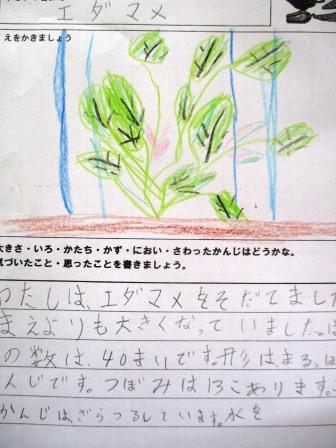 エダマメ
えをかきましょう
大きさ・いろ・かたち・かず・におい・さわったかんじはどうかな。
気づいたこと・思ったことを書きましょう。
わたしは、エダマメをそだてまし
まえよりも大きくなっていました。は
の数は、40まいです。形は、まるっぽ
んじです。つぼみは13こあります。
かんじは、ざらつるしています。水を